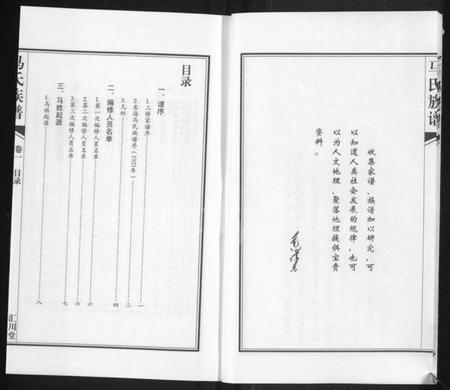 马氏族谱
收集家谱、族谱加以研究，可
以知道人类社会发展的规律，也可
以为人文地理、聚落地理提供宝贵
资料。
毛泽东
目录
一、谱序
1.三修家谱序……一
2.东海马氏族谱序（1921年）……三
3.凡例……四
二、编修人员名单
1.第一次编修人员名单……六
2.第二次编修人员名单……六
3.第三次编修人员名单……七
三、马姓起源
1.马姓起源……八
马氏族谱
卷一
目录
汇川堂